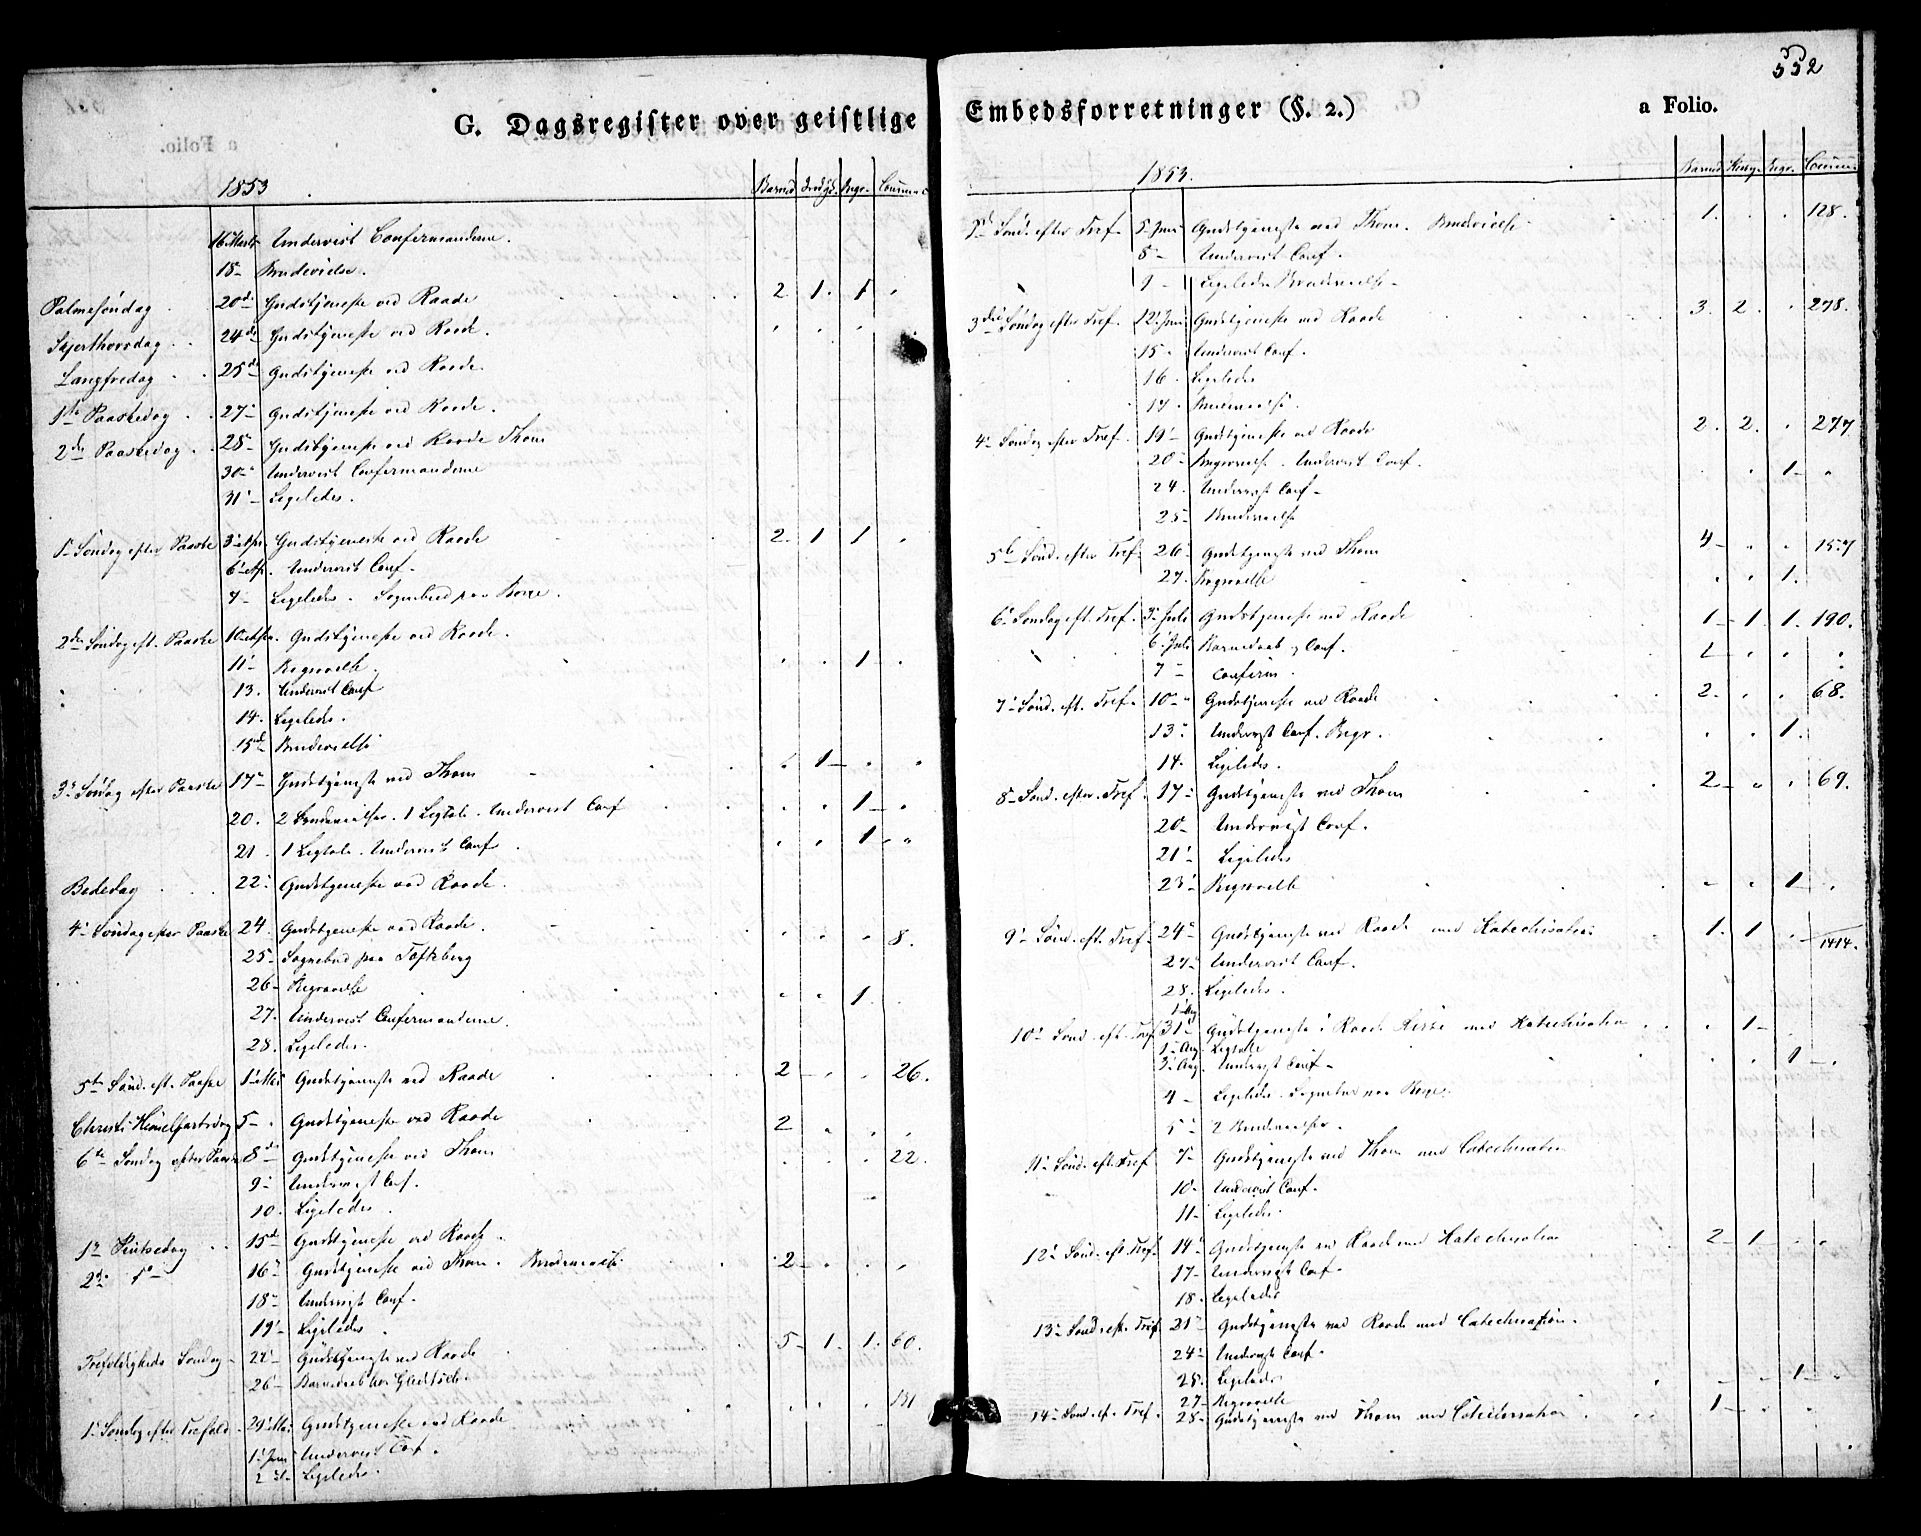 552
G. Dagsregister over geistlige
1853
Barned Indgd. Begr. Commun
16 Marts Undervist Confermanderne.
18- Brudevielse.
Palmesøndag 20de Gudstjeneste ved Raade 2 1. 1
Skjerthorsdag 24de Gudstjeneste ved Raade.
Langfredag 25de Gudstjeneste ved Raade.
1ste Paaskedag 27- Gudstjeneste ved Raade.
2den Paaskedag 28- Gudstjeneste ved Raade Thom
30- Undervist Confermanderne
31- Ligeledes.
1- Søndag efter Paaske 3- Apr. Gudstjeneste ved Raade 2. 1 1
6- Ap. Undervist Conf.
7- Ligeledes. Sognebud paa
2den Søndag eft. Paaske 10- Apr. Gudstjeneste ved Raade.
11- Begravelse. 1
13. Undervist Conf
14. Ligeledes.
15d Brudevielse
3- Søndag efter Paaske 17- Gudstjeneste ved Thom 1
20. 2 Brudevielser. 1 Ligtale. Undervist Conf 1
21. 1 Ligtale. Undervist Conf 1
Bededag 22- Gudstjeneste ved Raade.
4- Søndag efter Paaske 24. Gudstjeneste ved Raade. 8.
25- Sognebud paa Tofteberg
26- Begravelse 1
27. Undervist Confermanderne.
28. Ligeledes.
5te Sønd. eft. Paaske 1- Mai Gudstjeneste ved Raade 2 26.
Christi Himelfartsdag 5- Gudstjeneste ved Raade 2
6te Søndag efter Paaske 8de Gudstjeneste ved Thom 22.
9- Undervist Conf.
10. Ligeledes
1- Pintsedag 15d Gudstjeneste ved Raade
2den do 16- Gudstjeneste ved Thom. Brudevielse 2
18- Undervist Conf.
19- Ligeledes
Trefoldigheds Søndag 22- Gudstjeneste ved Raade 5 1 1. 60.
26- Barnedaab
1- Søndag efter Trefold. 29- Mai Gudstjeneste ved Raade 131
1- Juni Undervist Conf.
2 Ligeledes.
Embedsforretninger (§. 2.) a Folio.
1853.
Barned Begr. Commun.
2den Sønd. efter Tref. 5- Juni Gudstjeneste ved Thom. Brudevielse 1. 128.
8- Undervist Conf.
9- Ligeledes Brudevielse
3die Søndag efter Tref. 12- Juni Gudstjeneste ved Raade 3. 2. 278.
15. Undervist Conf.
16. Ligeledes
17. Brudevielse.
4- Søndag efter Tref. 19- Gudstjeneste ved Raade 2. 2. 277
20- Begravelse. Undervist Conf. 1
24. Undervist Conf
25- Brudevielse
5te Sønd. efter Tref. 26- Gudstjeneste ved Thom 4 157
27. Begravelse 1.
6- Søndag eft. Tref. 3- Juli Gudstjeneste ved Raade 1 1. 1. 190.
6- Juli Barnedaab og Conf. 1
7- Conferm.
7- Sønd. eft. Tref. 10- Gudstjeneste ved Raade 2. 68.
13- Undervist Conf. Begr. 1.
14. Ligeledes.
8- Sønd. efter Tref. 17- Gudstjeneste ved Thom 2 69.
20- Undervist Conf.
21- Ligeledes
23- Begravelse 1
9- Sønd. eft. Tref. 24- Gudstjeneste ved Raade med Katechisation 1. 1 1414.
27- Undervist Conf.
28. Ligeledes.
10- Sønd. eft. Tref. 31- Gudstjeneste i Raade Kirke med Katechisation 1
1- Aug. Ligtale
3- Aug. Undervist Conf. 1
4 Ligeledes. Sognebud paa
5- 2 Brudevielser.
11- Sønd. eft. Tref 7- Gudstjeneste ved Thom med Catechisation
10- Undervist Conf.
11- Ligeledes
12- Sønd. eft. Tref. 14- Gudstjeneste ved Raade med Katechisation 2 1
17- Undervist Conf.
18. Ligeledes
13- Sønd. eft. Tref. 21- Gudstjeneste ved Raade med Catechisation.
24- Undervist Conf.
25. Ligeledes 1
27- Begravelse
14- Sønd. ef. Tref. 28- Gudstjeneste ved Thom med Catechisation 1